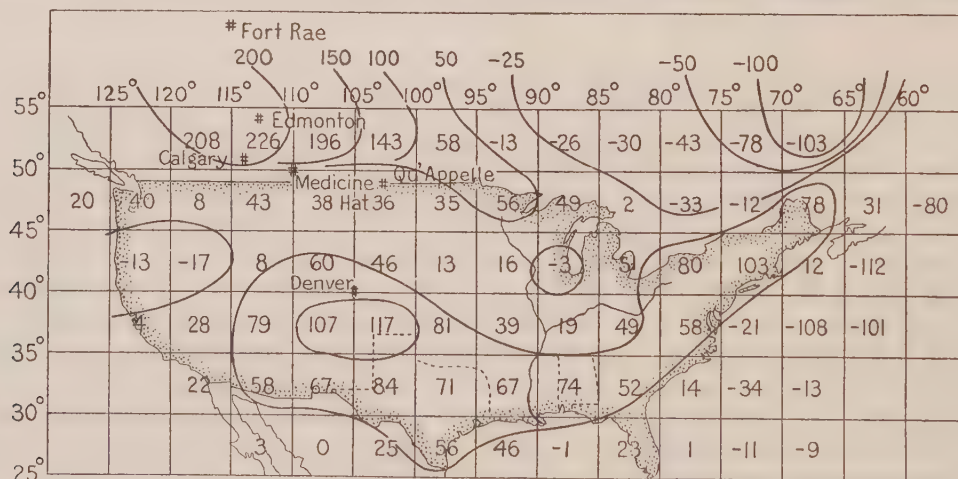 # Fort Rae
200 150 100 50 -25 -50 -100
125° 120° 115° 110° 105° 100° 95° 90° 85° 80° 75° 70° 65° 60°
55°
# Edmonton
208 226 196 143 58 -13 -26 -30 -43 -78 -103
Calgary #
50°
Medicine # Qu'Appelle
20 40 8 43 38 Hat 36 35 56 49 2 -33 -12 78 31 -80
45°
13 -17 8 60 46 13 16 -3 51 80 103 12 -112
Denver #
40°
4 28 79 107 117 81 39 19 49 58 -21 -108 -101
35°
22 58 67 84 71 67 74 52 14 -34 -13
30°
3 0 25 56 46 -1 23 1 -11 -9
25°